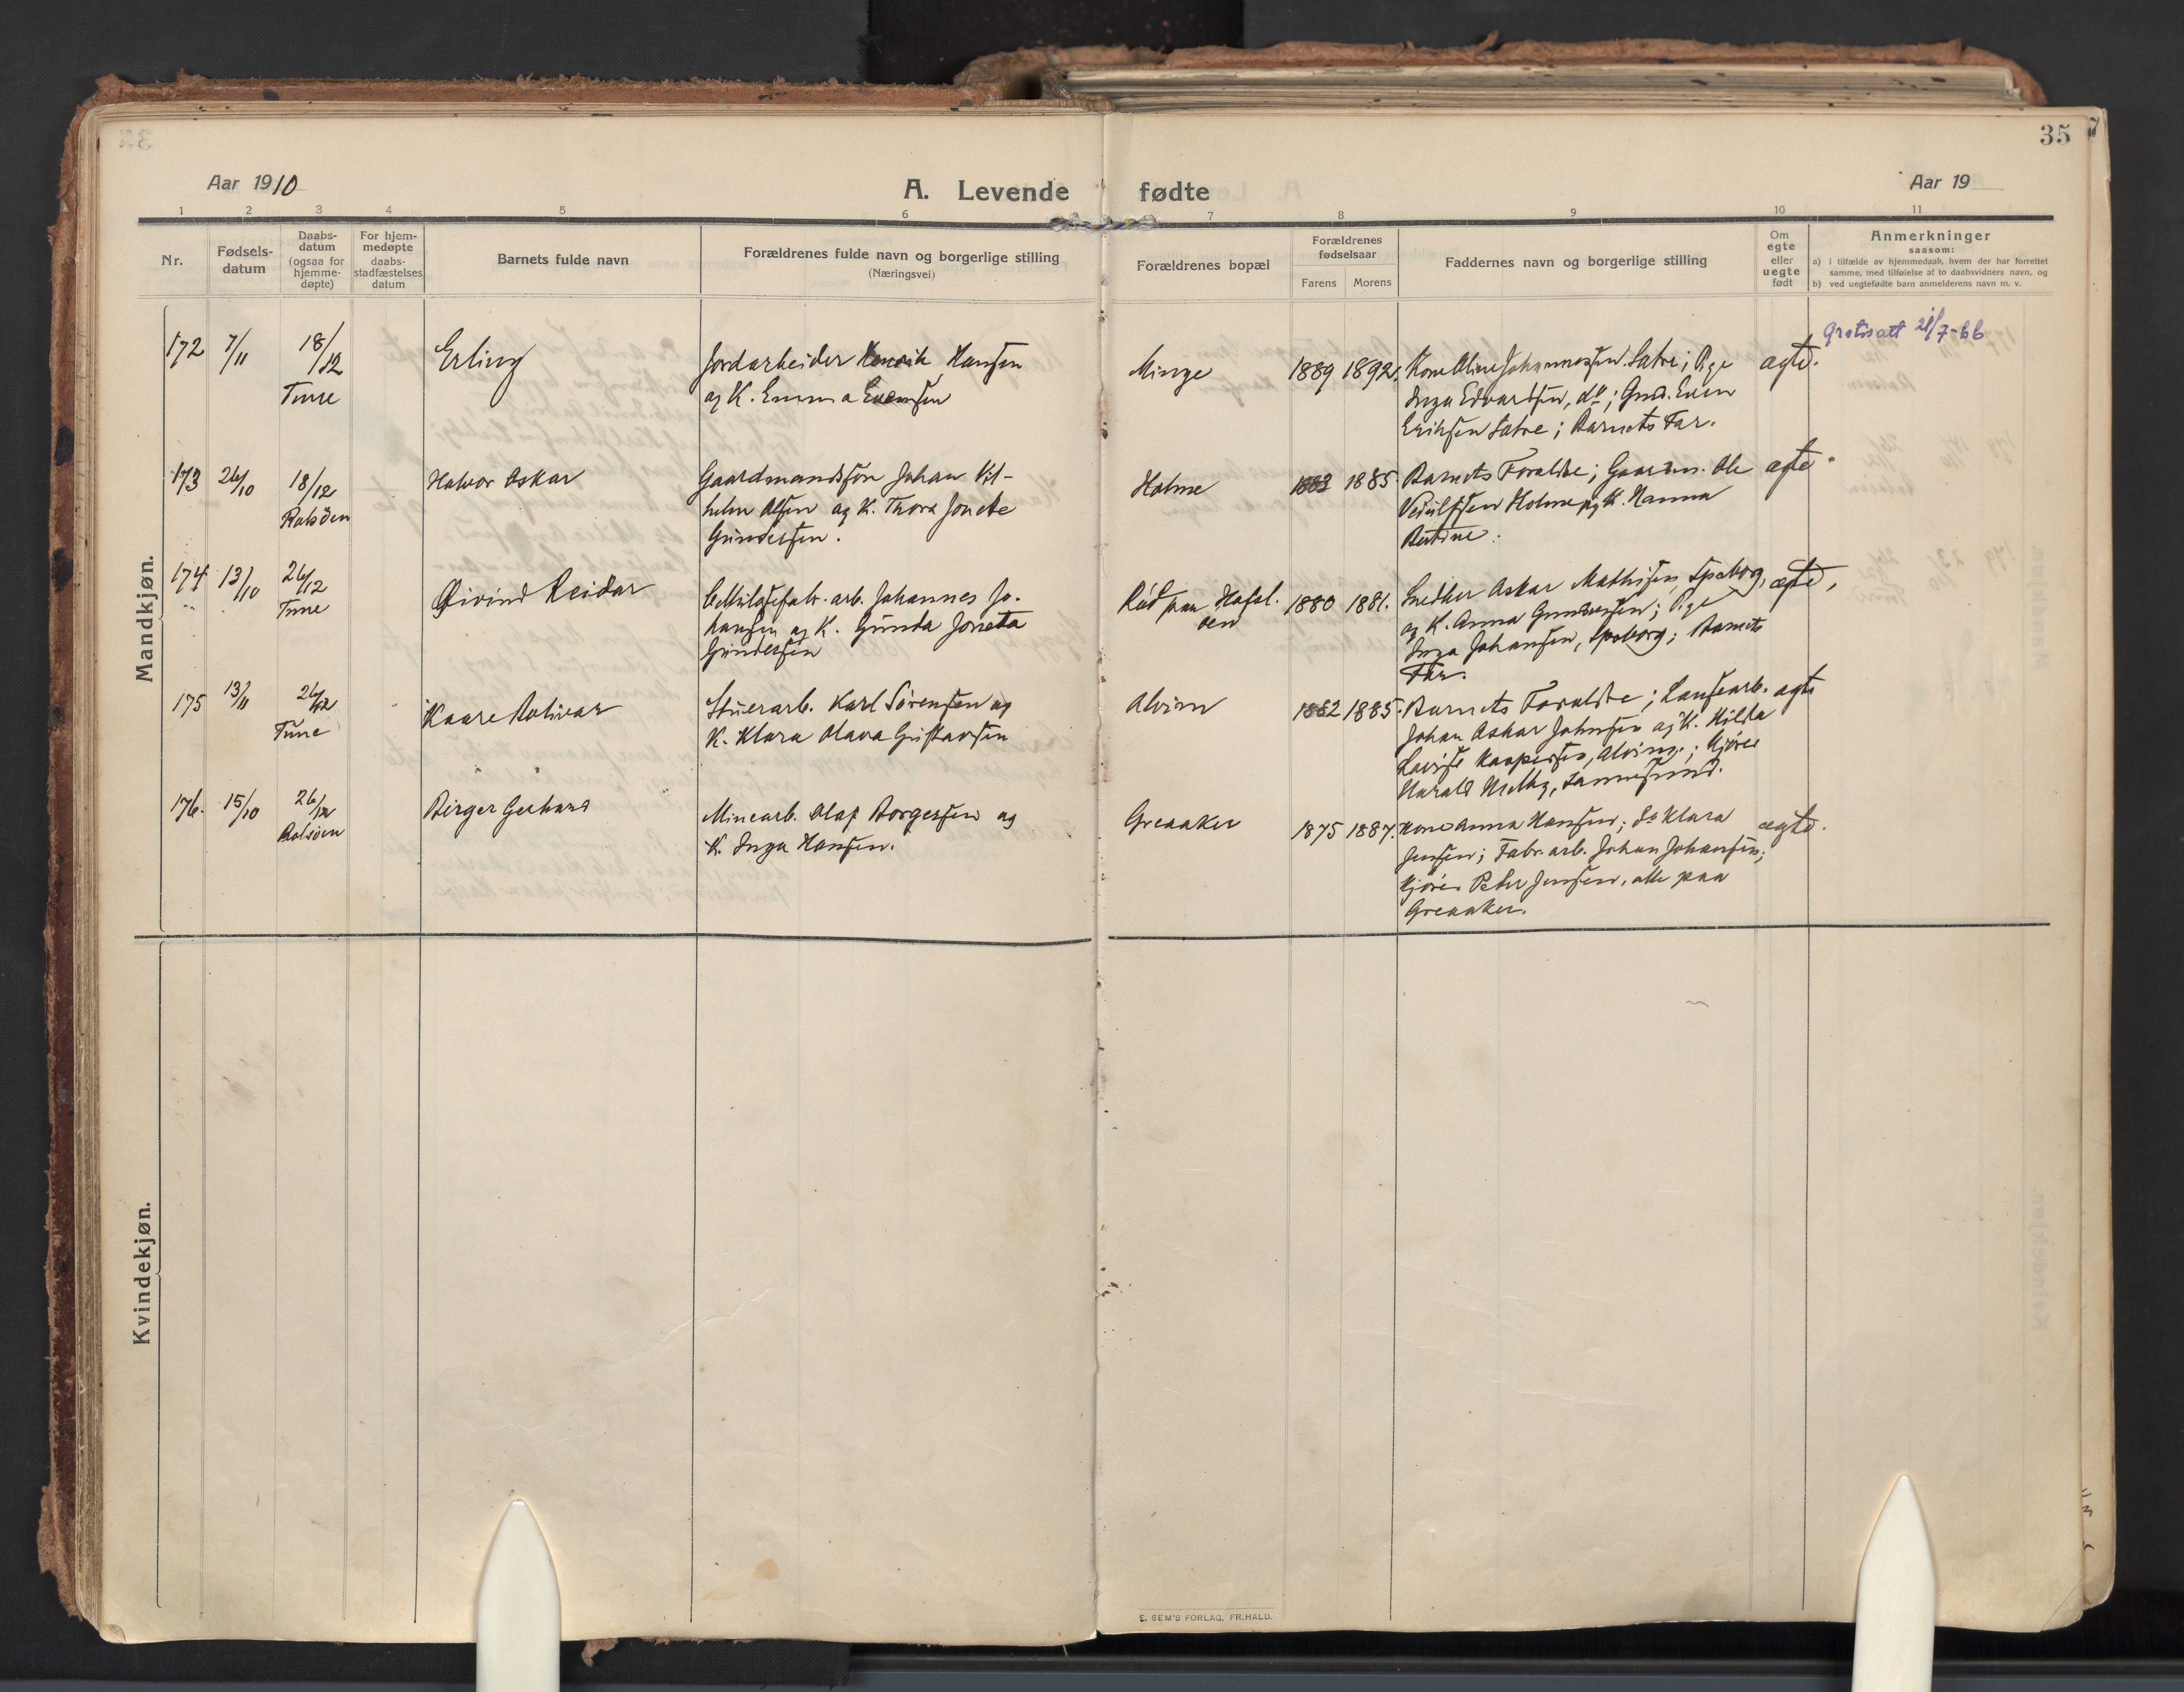 35
Aar 1910
A. Levende fødte
Aar 19
1 2 3 4 5 6 7 8 9 10 11
Nr.
Fødsels-
datum
Daabs-
datum
(ogsaa for
hjemme-
døpte)
For hjem-
medøpte
daabs-
stadfæstelses
datum
Barnets fulde navn
Forældrenes fulde navn og borgerlige stilling
(Næringsvei)
Forældrenes bopæl
Forældrenes
fødselsaar
Farens Morens
Faddernes navn og borgerlige stilling
Om
egte
eller
uegte
født
Anmerkninger
saasom:
a) i tilfælde av hjemmedaab, hvem der har forrettet
samme, med tilføielse af to daabsvidners navn, og
b) ved uegtefødte barn anmelderens navn m. v.
Mandkjøn.
172 7/11 18/12
Tune
Erling
Jordarbeider Henrik Hansen
og K. Emma Evensen
Minge
1889 1892.
Kone Oline Johannessen Satre; Pige
Inga Edvardsen, do; Gmd. Even
Eriksen Satre; Barnets Far.
ægte.
21/7-66
173 26/10 18/12
Rolsöen
Halvor Oskar
Gaardmandssøn Johan Vil-
helm Olsen og K. Thora Jonette
Gundersen.
Holme
1883 1885.
Barnets Forældre; Gaardm. Ole
Holme og K. Hanna
ægte
174 13/10 26/12
Tune
Øivind Reidar
Cellulosefabr. arb. Johannes Jo-
hansen og K. Gunda Joneta
Gundersen
Röd paa Hafsl.
öen
1880 1881.
Snedker Oskar Mathisen, Spaborg,
og K. Anna Gundersen; Pige
Inga Johansen, Spaborg; Barnets
Far.
ægte,
175 13/11 26/12
Tune
Kaare Bolivar
Stuerarb. Karl Sörensen og
K. Klara Olava Gustavsen
Alvim
1882 1885.
Barnets Forældre; Lansearb.
Johan Oskar Johnsen og K. Hilda
Lovise Kaspersen, Alvim; Kjörer
Harald Melby, Sannesund.
ægte
176. 15/10 26/12
Rolsöen
Birger Gerhard
Minearb. Olaf Borgersen og
K. Inga Hansen.
Greaaker
1875 1887.
Kone Anna Hansen; do Klara
Jensen; Fabr. arb. Johan Johansen;
Kjörer Peter Jensen, alle paa
Greaaker.
ægte.
Kvindekjøn.
E. SEM'S FORLAG, FR.HALD.